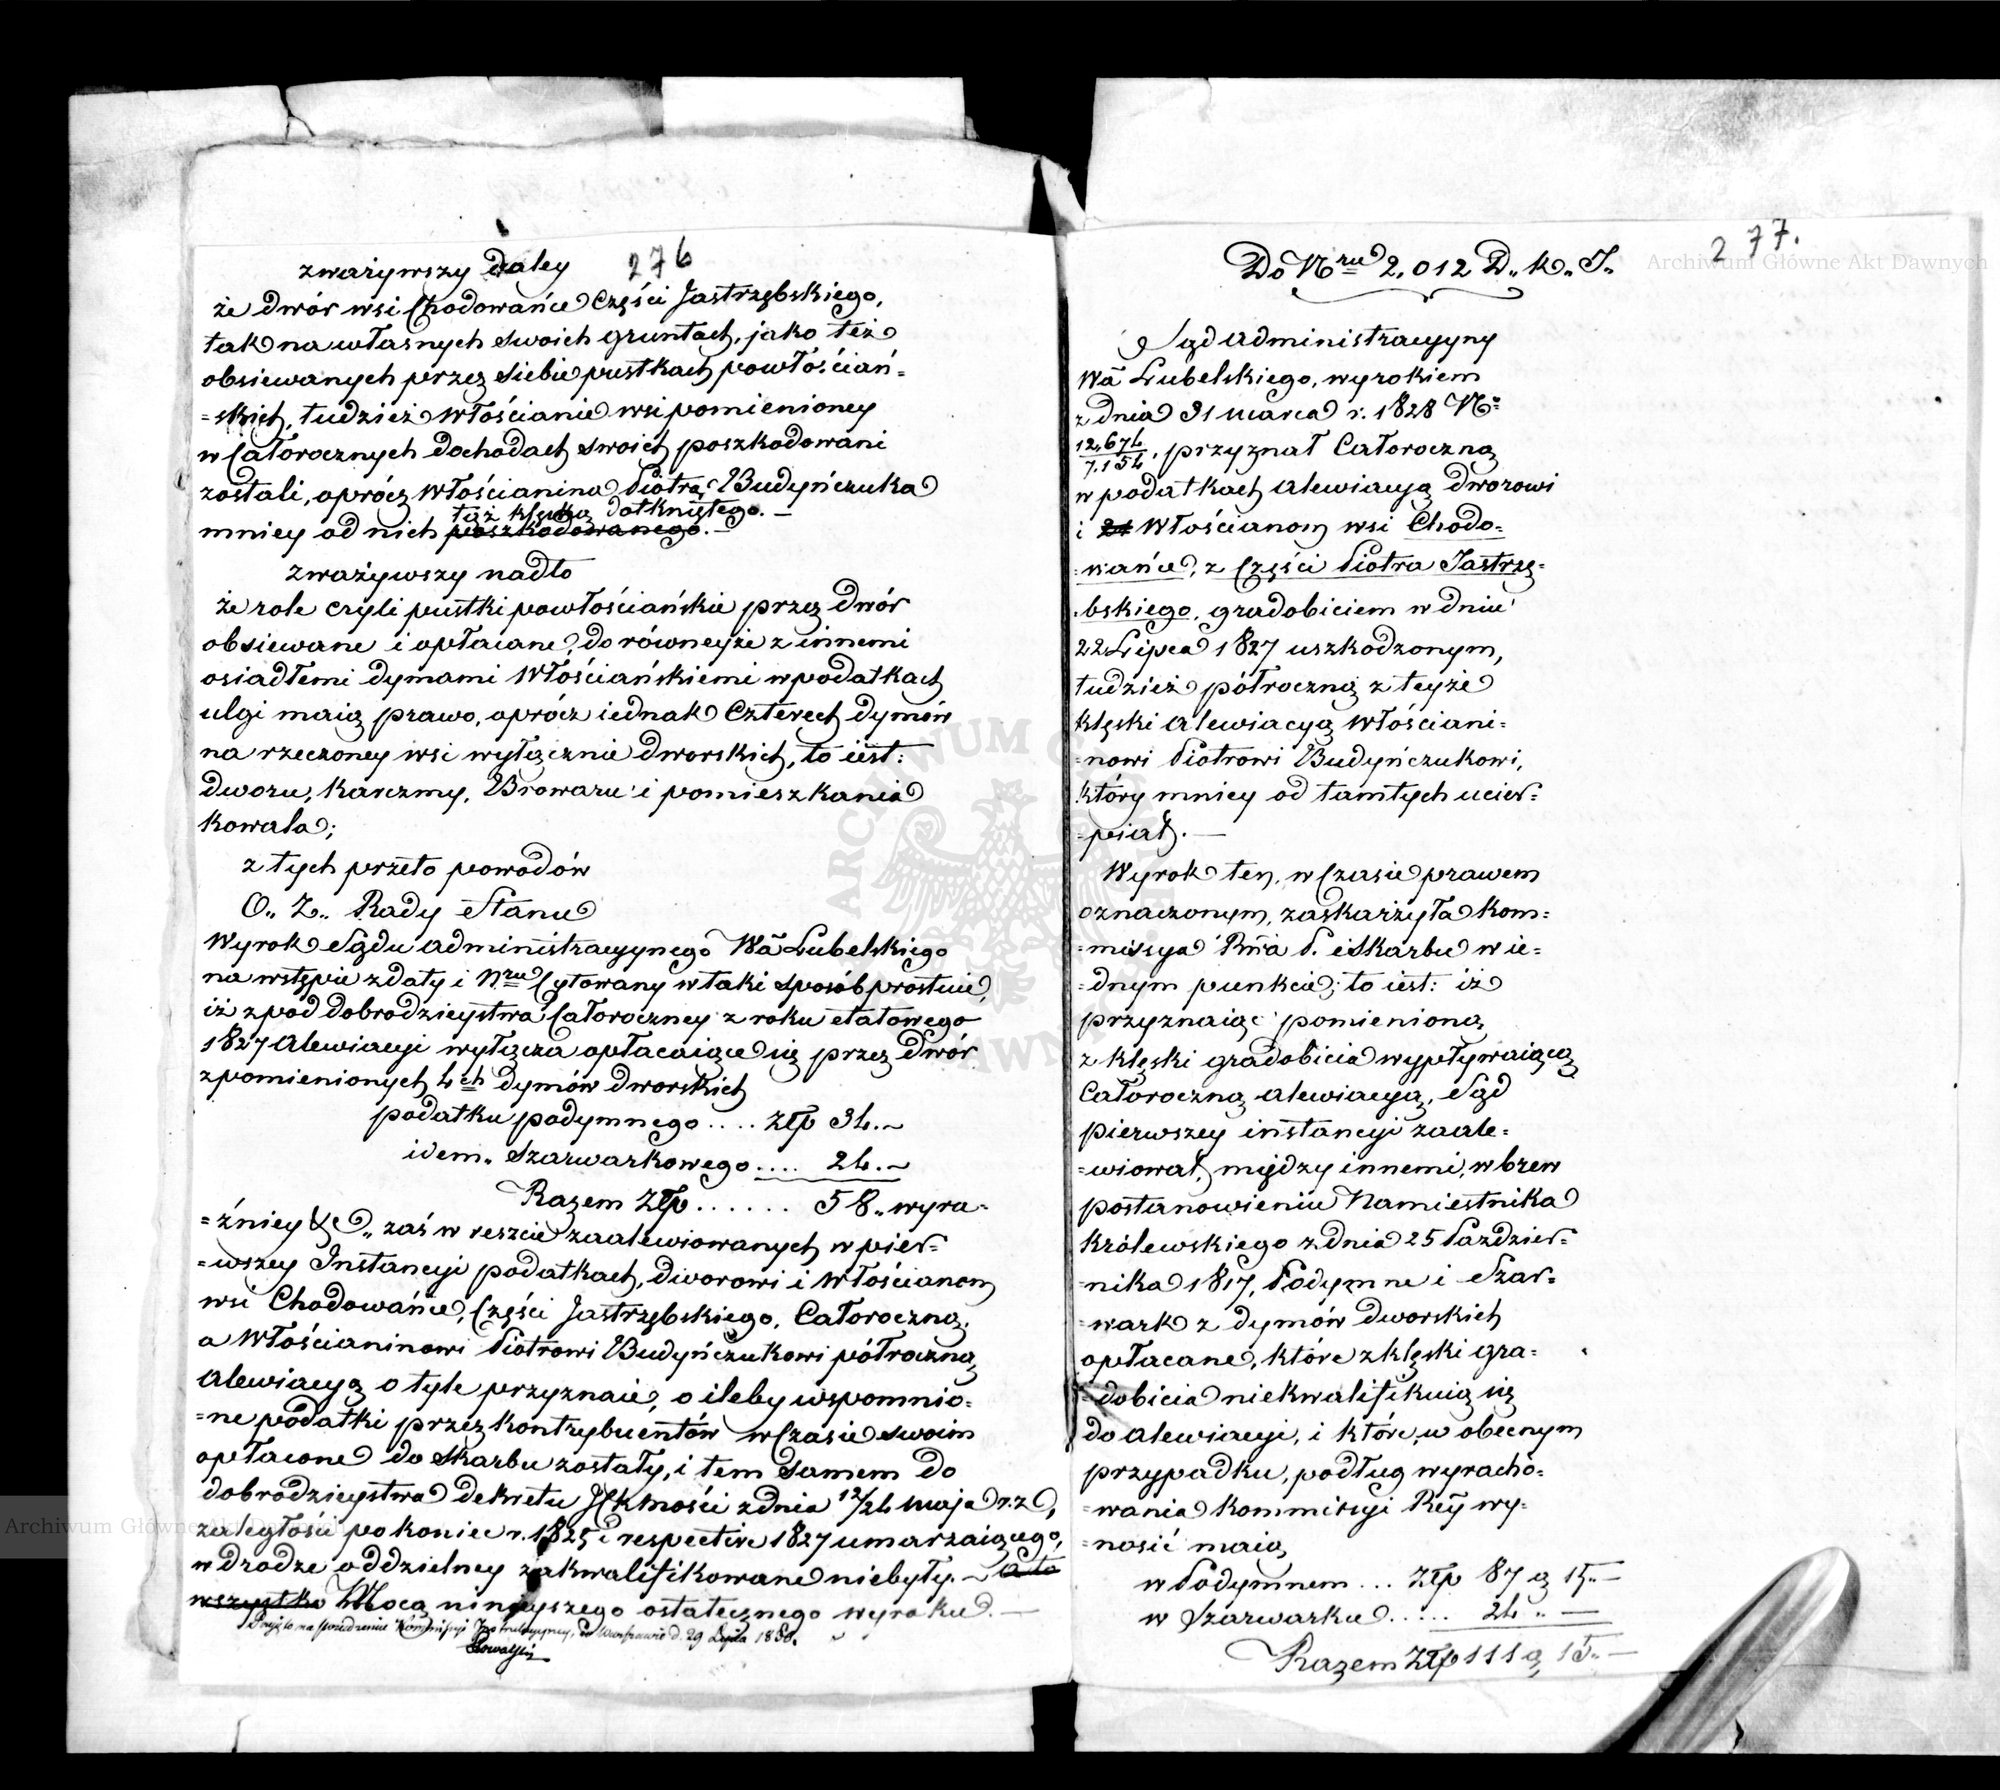 276
zważywszy daley
że dwór wsi Chodowańce Części Jastrzębskiego,
tak na własnych swoich gruntach, jako też
obsiewanych przez siebie pustkach powłościań=
=skich, tudzież włościanie wsi pomienioney
w Całorocznych dochodach swoich poszkodowani
zostali, oprócz włościanina Piotra Budyńczuka
taż klęską dotkniętego. —
mniey od nich poszkodowanego. —
zważywszy nadto
że role czyli pustki powłościańskie przez dwór
obsiewane i opłacane, do równeyże z innemi
osiadłemi dymami włościańskiemi w podatkach
ulgi maią prawo, oprócz iednak Czterech dymów
na rzeczoney wsi wyłącznie dworskich, to iest:
dworu, karczmy, Browaru i pomieszkania
kowala;
z tych przeto powodów
O„ Z„ Rady Stanu
Wyrok Sądu administracyynego Wa Lubelskiego
na wstępie z daty i Nru Cytowany w taki sposób prostuie,
iż z pod dobrodzieystwa Całoroczney z roku etatowego
1827 alewiacyi wyłącza opłacaiące się przez dwór
z pomienionych 4ch dymów dworskich
podatku podymnego .... złp 34.~
idem„ Szarwarkowego .... 24.~
Razem złp ...... 58„ wyra=
=źniey &c„ zaś w reszcie zaalewiowanych w pier=
=wszey Instancyi podatkach, dworowi i włościanom
wsi Chodowańce, Części Jastrzębskiego, Całoroczną,
a włościaninowi Piotrowi Budyńczukowi półroczną
alewiacyą o tyle przyznaie, o ileby wspomnio=
=ne podatki przez kontrybuentów w Czasie swoim
opłacone do skarbu zostały, i tem samem do
dobrodzieystwa dekretu JCKMości z dnia 12/24 maja r. z.,
zaległości po koniec r. 1825 i respective 1827 umarzaiącego,
w drodze oddzielney zakwalifikowane niebyły. — a to
wszystko Mocą ninieyszego ostatecznego wyroku. —
w Warszawie d. 29 Lipca 1830.
277.
Do Nru 2,012 D„ K„ J„
Sąd administracyyny
Wa Lubelskiego, wyrokiem
z dnia 31 marca r. 1828 No
12,674/7,154, przyznał Całoroczną
w podatkach alewiacyą dworowi
i 24 włościanom wsi Chodo=
=wańce, z Części Piotra Jastrzę=
=bskiego, gradobiciem w dniu
22 Lipca 1827 uszkodzonym,
tudzież półroczną z teyże
klęski alewiacyą włościani=
=nowi Piotrowi Budyńczukowi,
który mniey od tamtych ucier=
=piał. —
Wyrok ten, w Czasie prawem
oznaczonym, zaskarżyła Kom=
=missya Rwa P. i Skarbu w ie=
=dnym punkcie; to iest: iż
przyznaiąc pomienioną
z klęski gradobicia wypływaiącą
Całoroczną alewiacyą, Sąd
pierwszey instancyi zaale=
=wiował, między innemi, wbrew
postanowieniu Namiestnika
Królewskiego z dnia 25 Paździer=
=nika 1817, Podymne i Szar=
=wark z dymów dworskich
opłacane, które z klęski gra=
=dobicia niekwalifikuią się
do alewiacyi, i które, w obecnym
przypadku, podług wyracho=
=wania Kommissyi Rey wy=
=nosić maią
w Podymnem ... złp 87 g 15„ —
w Szarwarku ..... 24 „ —
Razem złp 111 g 15„ —
Archiwum Główne Akt Dawnych
Archiwum Główne Akt Dawnych